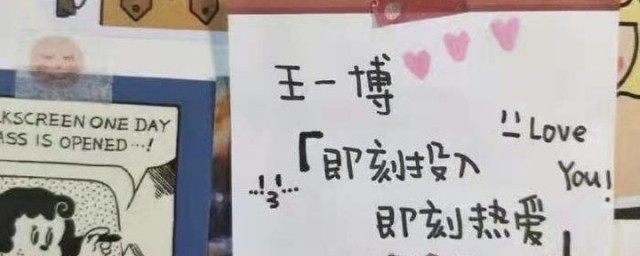 KSCREEN ONE DAY
ASS IS OPENED...!
王一博
Love
You!
「即刻投入
即刻热爱